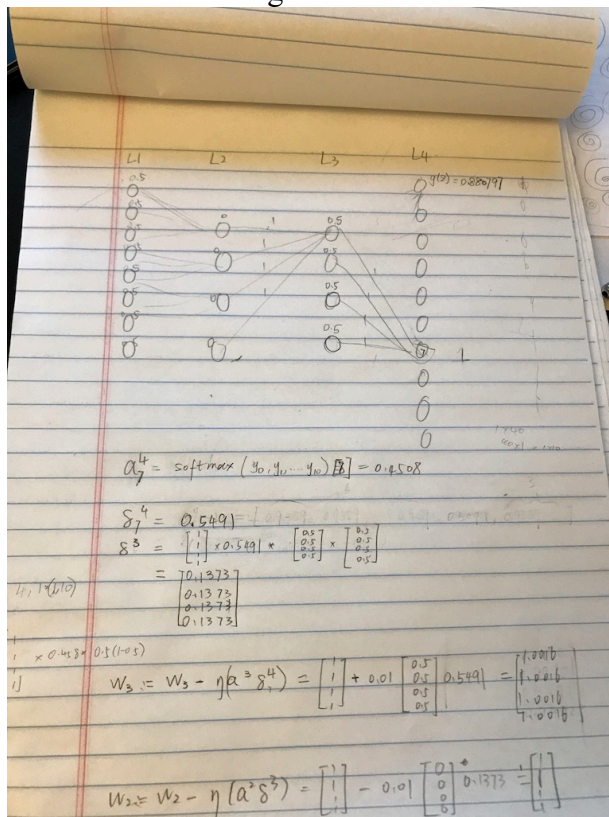 L1 L2 L3 L4
0.5 y(2) = 0.880797
0.5 0 1 0.5
0.5 1
0.5 0 1 0.5 1
0.5
0.5 0 1 0.5
0.5 0.5 1
0.5 7 1
a⁴₇ = softmax (y₀, y₁, ... y₁₀) [8] = 0.4508
δ⁴₇ = 0.5491
δ³ = [1 1 1 1] × 0.5491 * [0.5 0.5 0.5 0.5] × [0.5 0.5 0.5 0.5]
= [0.1373 0.1373 0.1373 0.1373]
× 0.458 × 0.5(1-0.5)
W₃ := W₃ - η(a³δ⁴) = [1 1 1 1] + 0.01 [0.5 0.5 0.5 0.5] 0.5491 = [1.0016 1.0016 1.0016 1.0016]
W₂ := W₂ - η(a²δ³) = [1 1 1 1] - 0.01 [0 0 0 0] * 0.1373 = [1 1 1 1]